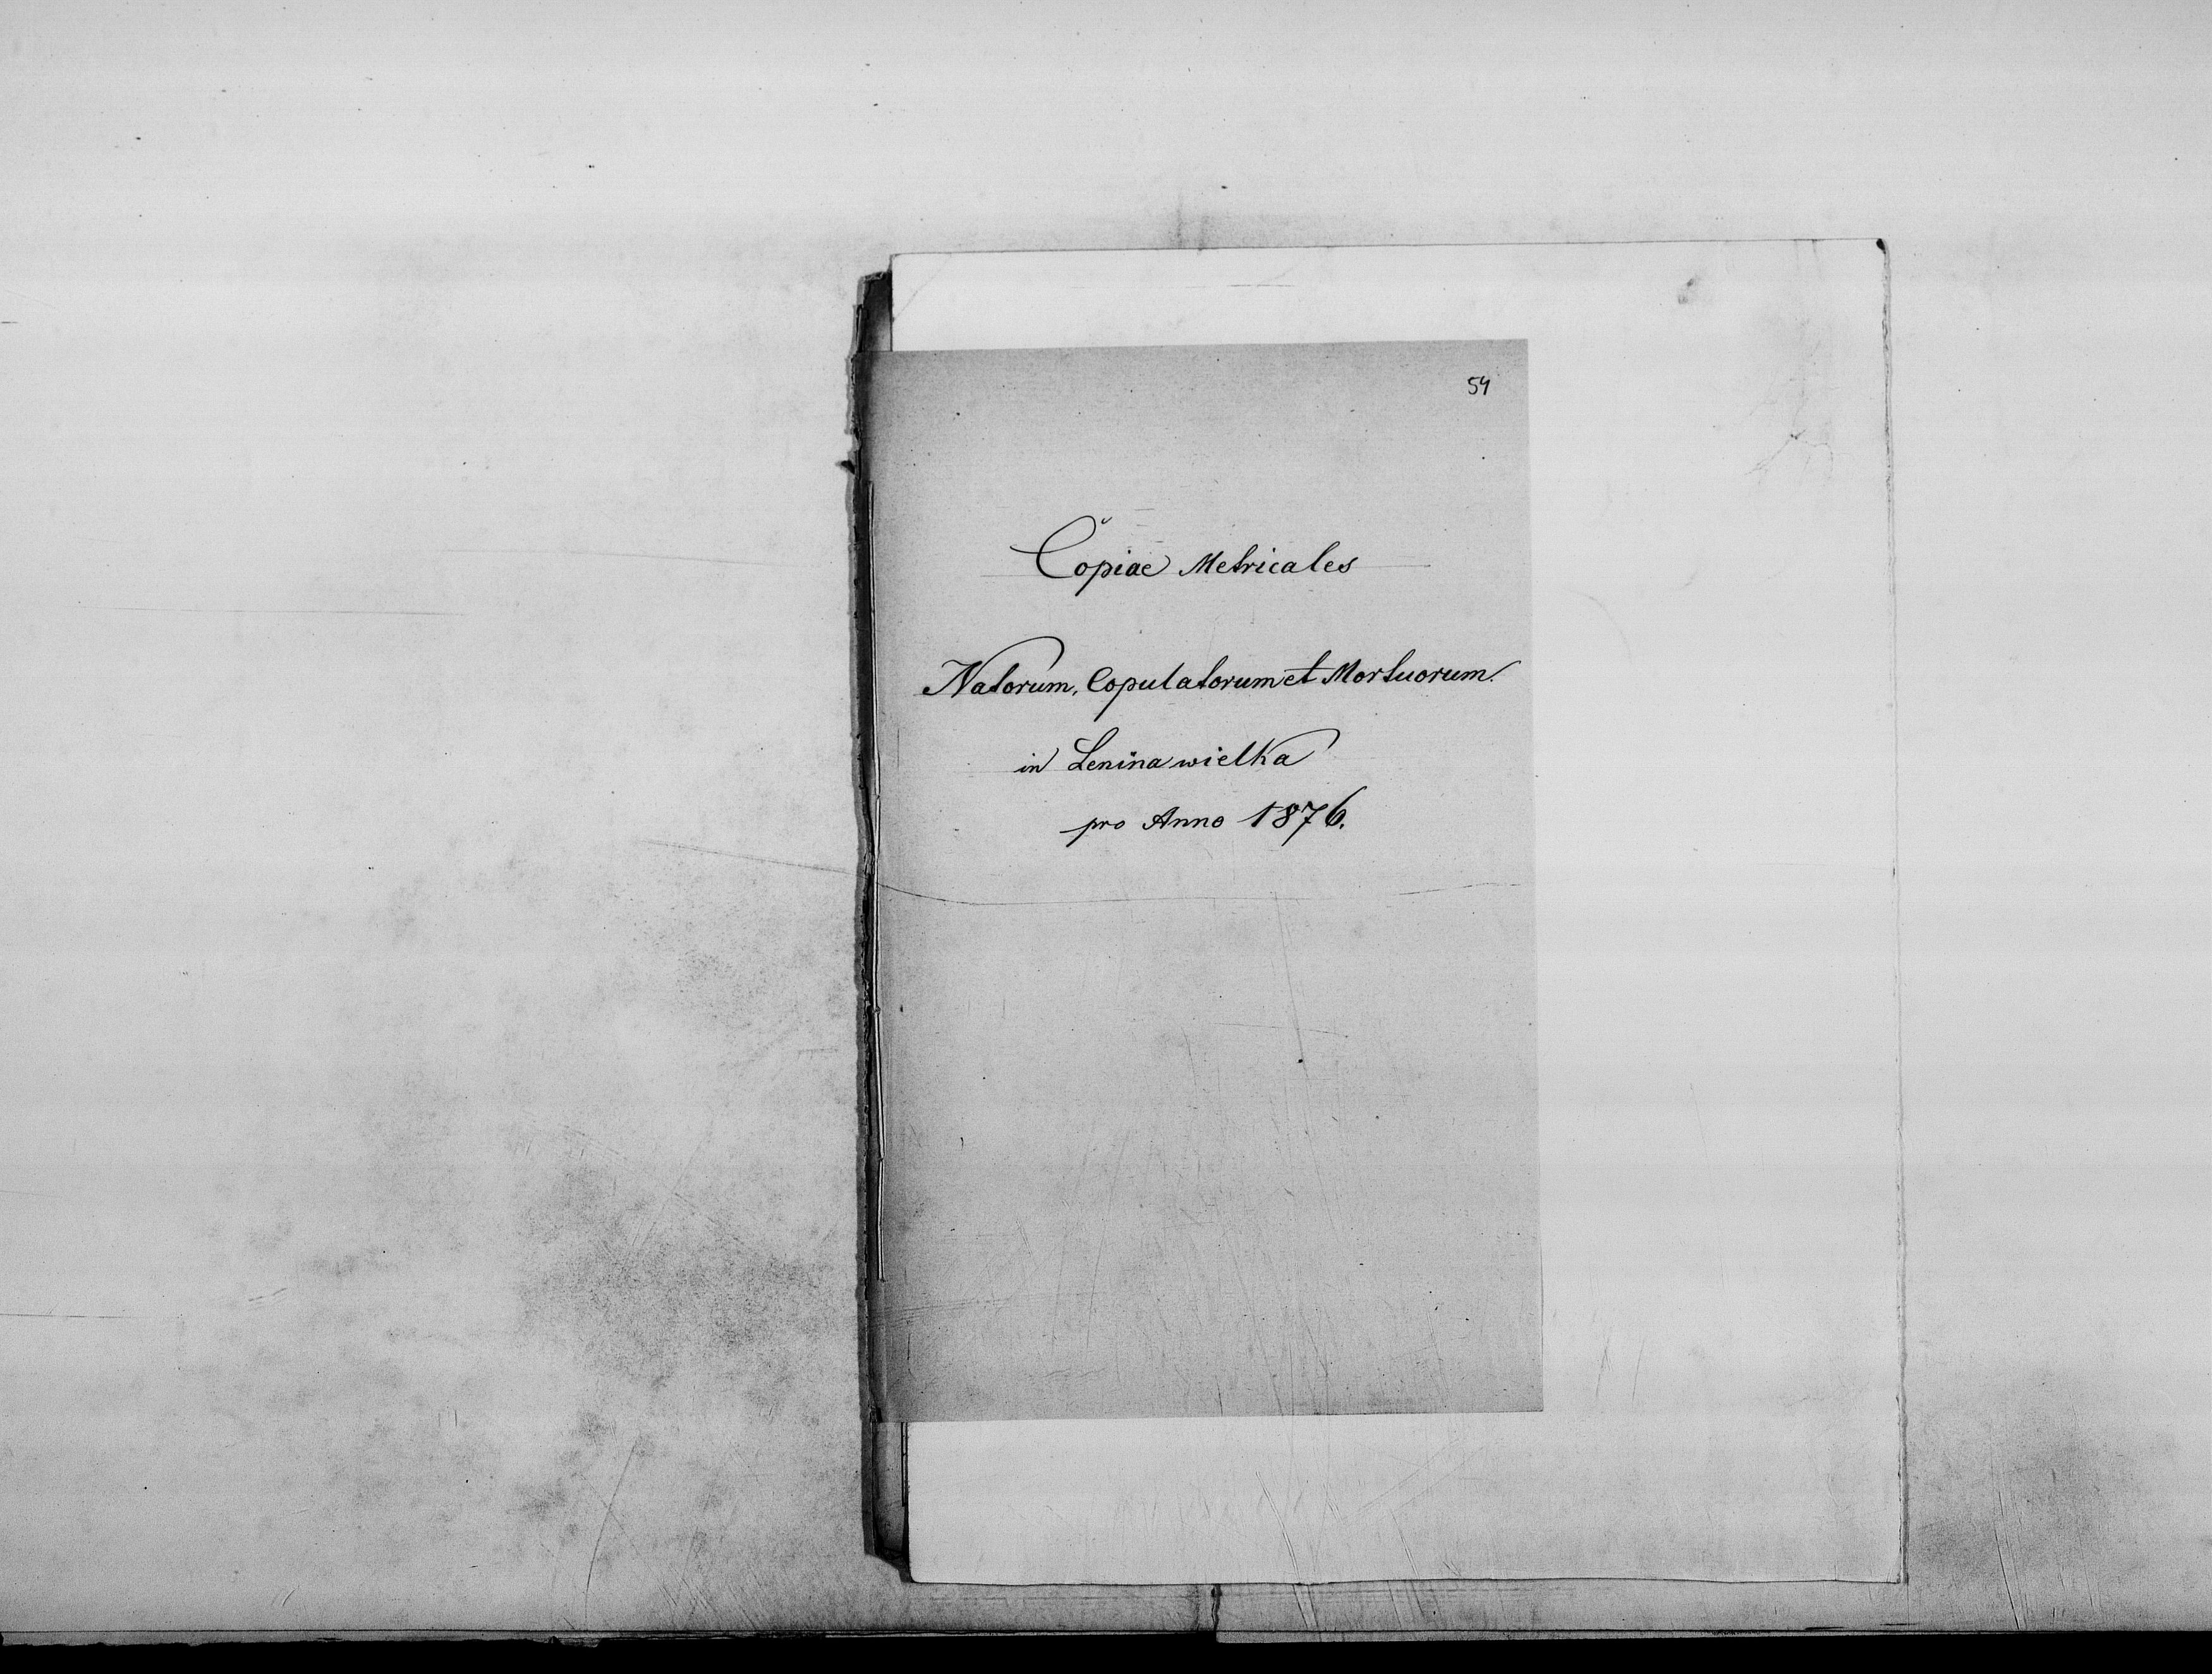 54
Copiae Metricales
Natorum, Copulatorum et Mortuorum.
in Lenina wielka
pro Anno 1876.